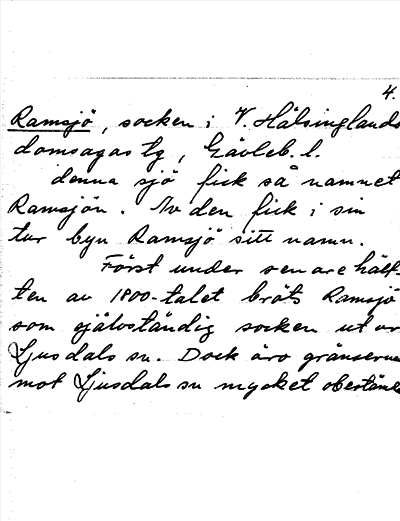 4.
Ramsjö, socken i V. Hälsinglands
domsagas tg, Gävleb. l.
denna sjö fick så namnet
Ramsjön. Av den fick i sin
tur byn Ramsjö sitt namn.
Först under senare hälf-
ten av 1800-talet bröts Ramsjö
som självständig socken ut ur
Ljusdals sn. Dock äro gränserna
mot Ljusdals sn mycket obestäm